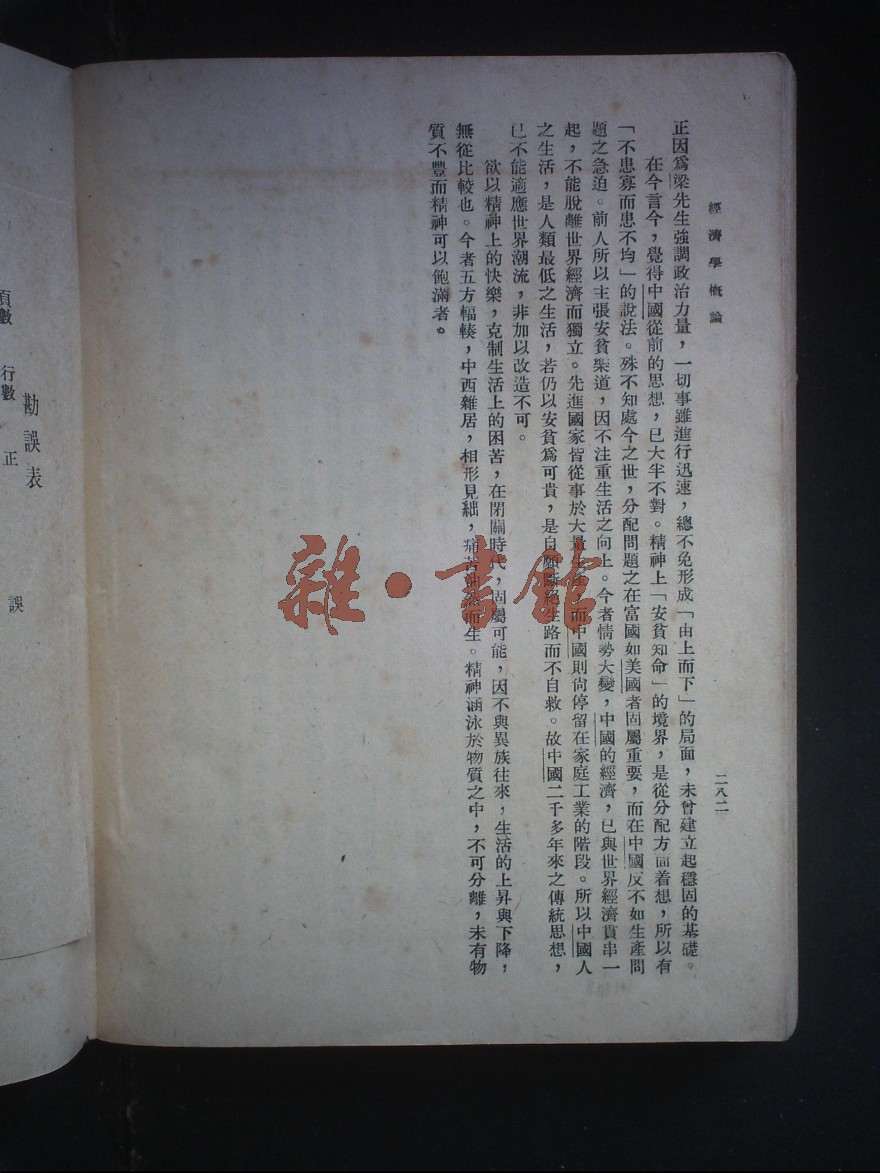 經濟學槪論
二八二
正因爲梁先生強調政治力量，一切事雖進行迅速，總不免形成「由上而下」的局面，未曾建立起穩固的基礎。
在今言今，覺得中國從前的思想，已大半不對。精神上「安貧知命」的境界，是從分配方面着想，所以有
「不患寡而患不均」的說法。殊不知處今之世，分配問題之在富國如美國者固屬重要，而在中國反不如生產問
題之急迫。前人所以主張安貧樂道，因不注重生活之向上。今者情勢大變，中國的經濟，已與世界經濟貫串一
起，不能脫離世界經濟而獨立。先進國家皆從事於大量生產，而中國則尙停留在家庭工業的階段。所以中國人
之生活，是人類最低之生活，若仍以安貧爲可貴，是自願斷絕生路而不自救。故中國二千多年來之傳統思想，
已不能適應世界潮流，非加以改造不可。
欲以精神上的快樂，克制生活上的困苦，在閉關時代，固屬可能，因不與異族往來，生活的上昇與下降，
無從比較也。今者五方輻輳，中西雜居，相形見絀，痛苦油然而生。精神涵泳於物質之中，不可分離，未有物
質不豐而精神可以飽滿者。
雜·書館
勘誤表
頁數
行數
正
誤